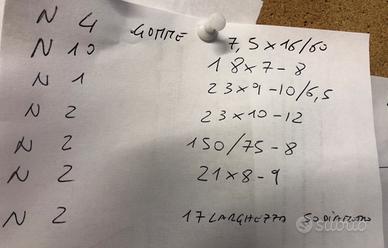 N 4 GOMME 7,5x16/60
N 10 18x7-8
N 1 23x9-10/6,5
N 2 23x10-12
N 2 150/75-8
N 2 21x8-9
N 2 17 LARGHEZZA 50 DIAMETRO
subito